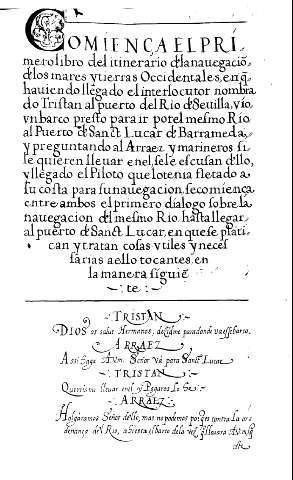 COMIENÇA EL PRI
mero libro del itinerario d̄ la nauegaciō
d̄ los mares y tierras Occidentales, en q̄
hauiendo llegado el interlocutor nombra
do Tristan al puerto del Rio d̄ Seuilla, vio
vn barco presto para ir por el mesmo Rio
al Puerto d̄ Sanct Lucar de Barrameda;
y preguntando al Arraez y marineros si
le quieren lleuar en el, se le escusan d̄ llo,
y llegado el Piloto que lo tenia fletado a
su costa para su nauegacion, se comiença
entre ambos el primero dialogo sobre la
nauegacion d̄l mesmo Rio hasta llegar
al puerto d̄ Sanct Lucar, en que se plati
can y tratan cosas vtiles y neces
sarias a ello tocantes, en
la manera siguiē
te.
TRISTAN
DIOS os salue Hermanos, dezidme para donde va esse barco.
ARRAEZ
Señor Va para Sanct Lucar
TRISTAN
Querrisme lleuar en el y Pagaros Lo he
ARRAEZ
Holgaramos Señor dello, mas no podemos porq̄ es contra La or
denança del Rio,